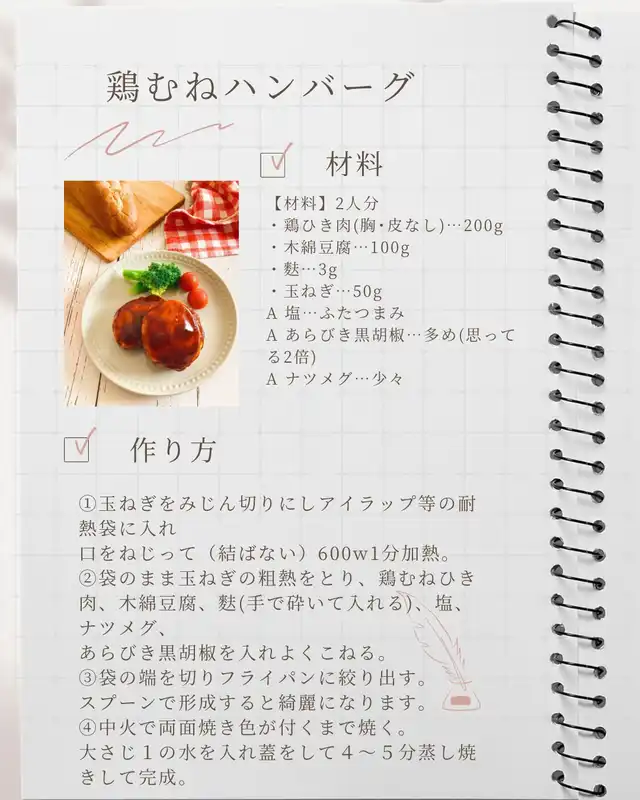 鶏むねハンバーグ
材料
【材料】2人分
・鶏ひき肉(胸・皮なし)…200g
・木綿豆腐…100g
・麩…3g
・玉ねぎ…50g
A 塩…ふたつまみ
A あらびき黒胡椒…多め(思って
る2倍)
A ナツメグ…少々
作り方
①玉ねぎをみじん切りにしアイラップ等の耐
熱袋に入れ
口をねじって（結ばない）600w1分加熱。
②袋のまま玉ねぎの粗熱をとり、鶏むねひき
肉、木綿豆腐、麩(手で砕いて入れる)、塩、
ナツメグ、
あらびき黒胡椒を入れよくこねる。
③袋の端を切りフライパンに絞り出す。
スプーンで形成すると綺麗になります。
④中火で両面焼き色が付くまで焼く。
大さじ１の水を入れ蓋をして４～５分蒸し焼
きして完成。